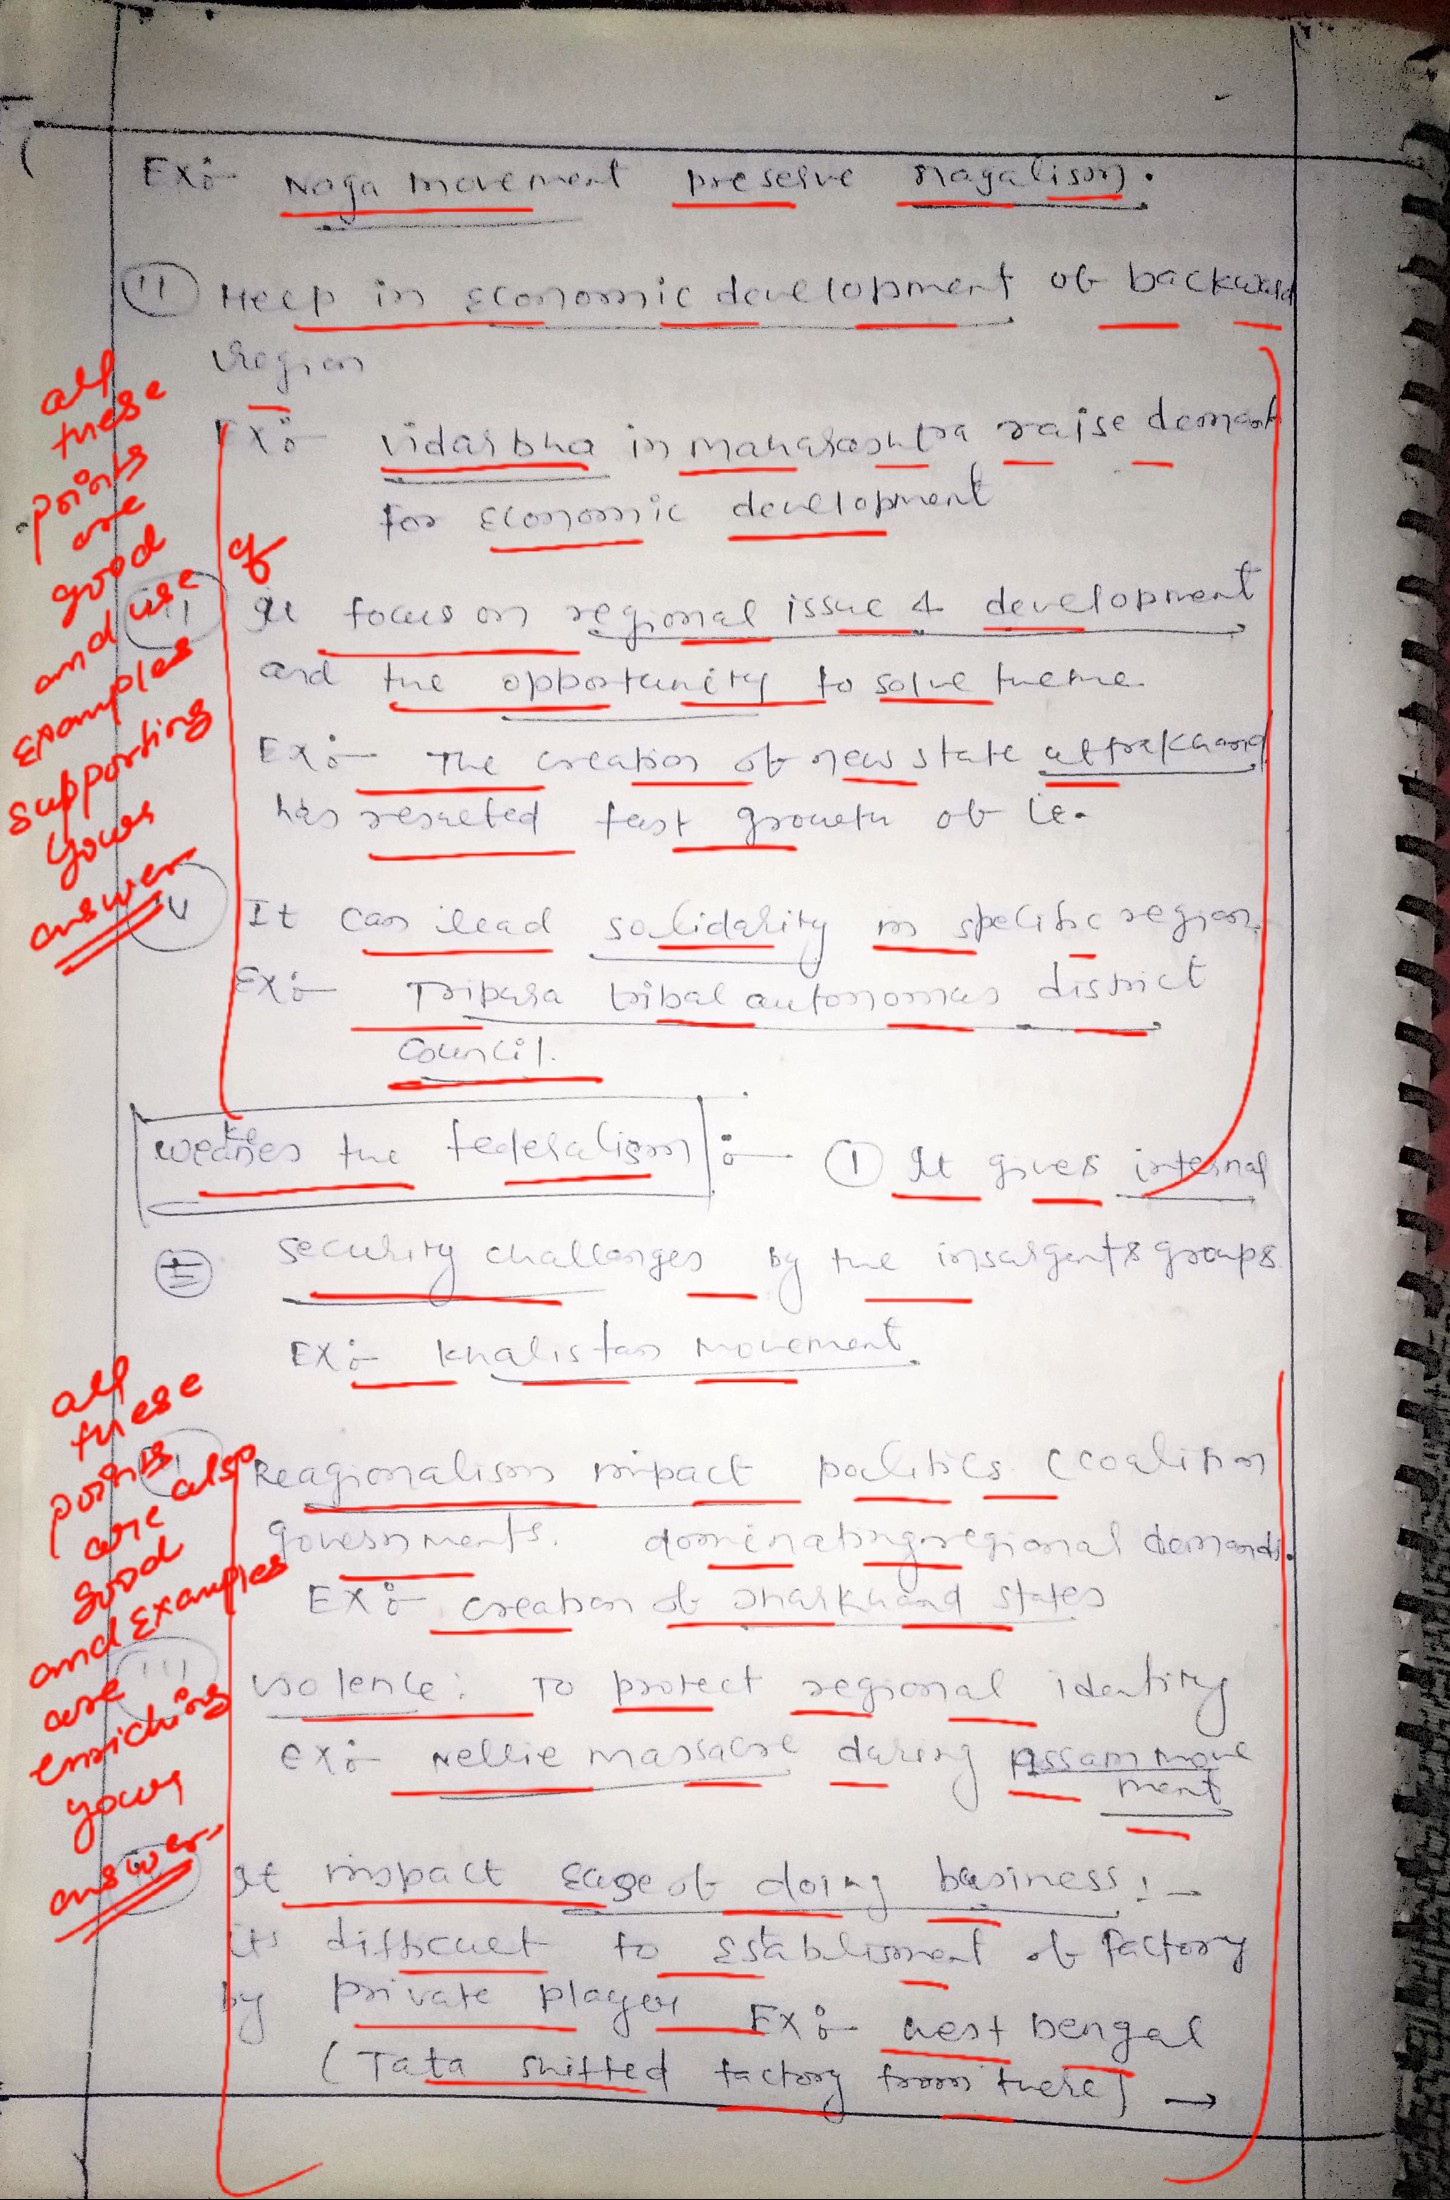 Ex:- Naga movement preserve nagalism.
(II) Help in economic development of backward
region
Ex:- vidarbha in maharashtra raise demand
for economic development
(III) It focus on regional issue & development
and the opportunity to solve theme.
Ex:- The creation of new state uttrakhand
has resulted fast growth of it.
(IV) It can lead solidarity in specific region.
Ex:- Tripura tribal autonomas district
council.
all
these
points
are
good
and use of
examples
supporting
your
answer
weakens the federalism :- (I) It gives internal
security challenges by the insurgents groups
Ex:- Khalistan movement.
(II) Reagionalism impact politics (coalition
governments. dominating regional demands.
Ex:- creation of Jharkhand states
(III) violence: To protect regional identity
ex:- Nellie massacre during Assam move
ment
It impact ease of doing business:-
its difficult to establisment of factory
by private player Ex:- west bengal
(Tata shifted factory from there) →
all
these
points
are also
good
and Examples
are
enriching
your
answer.